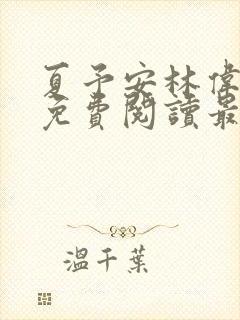 夏予安林偉
免費閱讀最
溫千葉